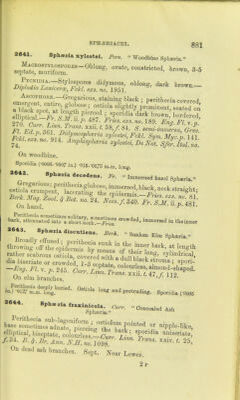 SPHÆRIACEI. 881
2641. Sphæria xylostei. Pers. " Woodbine Sphæria."
MACROSTYLOSPORES—Oblong, ovate, constricted, brown, 3-5
septate, muriform.
PYCNIDIA.—Stylospores didymous, oblong, dark brown.—
Diplodia Loniceræ, Fckl. exs. no. 1951.
ASCOPHORE.—Gregarious, staining black ; perithecia covered,
emergent, entire, globose ; ostiola slightly prominent, seated on
a black spot, at length pierced ; sporidia dark brown, bordered,
elliptical.—Fr. S.M. ii. p. 487. Fries. exs. no. 189. Eng. Fl. v. p.
270. Curr. Linn. Trans. xxii. t. 58, f. 81. S. semi-immersa, Grev.
Fl. Ed. p. 361. Didymosphæria xylostei, Fckl. Sym. Myc. p. 141.
Fckl. exs. no. 914. Amphisphæria xylostei, De Not. Sfer. Ital. no.
74.
On woodbine.
Sporidia m.m. long.
2642. Sphæria decedens. Fr. " Immersed hazel Sphæria."
Gregarious; perithecia globose, immersed, black, neck straight;
ostiola erumpent, lacerating the epidermis.—Fries. exs. no. 81.
Berk. Mag. Zool. & Bot. no. 24. Nees. f. 340. Fr. S.M. ii. p. 481.
On hazel.
Perithecia sometimes solitary, sometimes crowded, immersed in the inner
bark, attenuated into a short neck.—Fries.
2643. Sphæria discutiens. Berk. " Sunken Elm Sphæria."
Broadly effused; perithecia sunk in the inner bark, at length
throwing off the epidermis by means of their long, cylindrical,
rather scabrous ostiola, covered with a dull black stroma ; sporidia
biseriate or crowded, 1-3 septate, colourless, almond-shaped.
—Eng. Fl. v. p. 245. Curr. Linn. Trans. xxii. t. 47, f. 112.
On elm branches.
Perithecia deeply buried. Ostiola long and protruding. Sporidia
in.) m.m. long.
2644. Sphæria fraxinicola. Curr. " Concealed Ash
Sphæria."
Perithecia sub-lageniform ; ostiolum pointed or nipple-like,
base sometimes adnate, piercing the bark; sporidia uniseriate,
elliptical, biseptate, colourless.—Curr. Linn. Trans. xxii. t.
f. B. & Br. Ann. N.H. no. 1098.
On dead ash branches. Sept. Near Lewes.
2 F